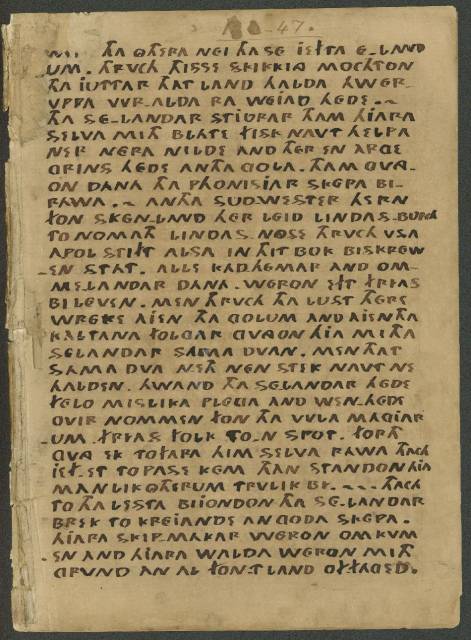 -47.
THA OTHERA NEI THA SE IEFTA E-LAND
UM. THRVCH THISSE SKIKKIG MOCHTON
THA IUTTAR THAT LAND HALDA HWER-
VPPA VVR-ALDA RA WEIAD HEDE.~
THA SE-LANDAR STIURAR THAM HIARA
SELVA MITH BLATE FISK NAVT HELPA
NER NERA NILDE AND THER EN ARGE
GRINS HEDE ANTHA GOLA. THAM GVA-
ON DANA THA PHONISIAR SKEPA BI-
RAWA.~ ANTHA SUDWESTER HERN
FON SKENLAND THER LEID LINDAS-BURCH
TO NOMATH LINDAS. NOSE THRVCH VSA
APOL STIFT ALSA IN THIT BUK BISKREW
-EN STAT. ALLE KADHEMAR AND OM-
ME-LANDAR DANA. WERON EFT FRIAS
BILEVEN. MEN THRVCH THA LUST THERE
WREKE AIEN THA GOLUM AND AIEN THA
KALTANA FOLGAR GVAON HIA MITHA
SELANDAR SAMA DVAN. MEN THAT
SAMA DVA NETH NEN STEK NAVT NE
HALDEN. HWAND THA SE-LANDAR HEDE
FELO MISLIKA PLEGA AND WEN-HEDE
OVIR NOMMEN FON THA VVLA MAGIAR
-UM. FRIAS FOLK TO-N SPOT. FORTH
GVA EK TO FARA HIM SELVA RAWA THACH
IEF-ET TO PASE KEM THAN STANDON HIA
MANLIK OTHERUM TRVLIK BY.~~ THACH
TO THA LESTA BIIONDON THA SE-LANDAR
BREK TO KREIANDE AN GODA SKEPA.
HIARA SKIPMAKAR WERON OMKVM
-EN AND HIARA WALDA WERON MITH
GRUND AN AL FON-T LAND OFFAGED.